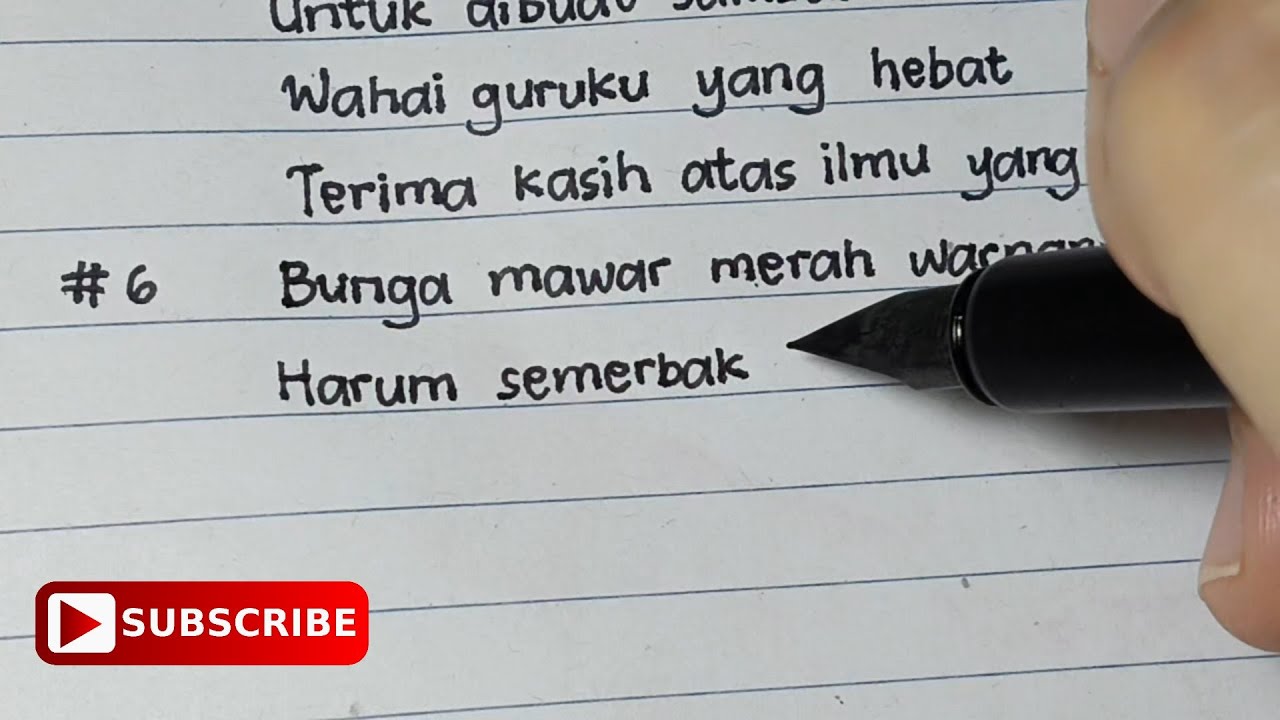 Untuk dibuat
Wahai guruku yang hebat
Terima kasih atas ilmu yang
#6 Bunga mawar merah
Harum semerbak
SUBSCRIBE